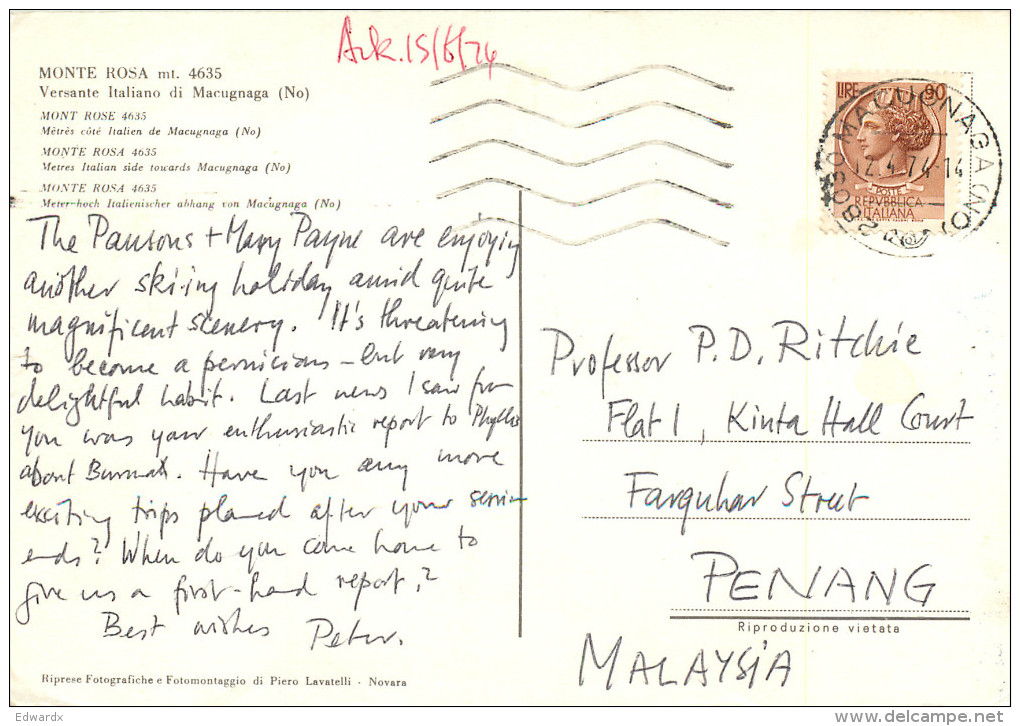 Ack. 15/6/74
MONTE ROSA mt. 4635
Versante Italiano di Macugnaga (No)
MONT ROSE 4635
Mètres côté Italien de Macugnaga (No)
MONTE ROSA 4635
Metres Italian side towards Macugnaga (No)
MONTE ROSA 4635
Meter-hoch Italienischer abhang von Macugnaga (No)
LIRE 90
POSTE
REPVBBLICA
ITALIANA
28030 MACUGNAGA (NO)
12.4.74-14
The Paulsons + Mary Payne are enjoying
another ski-ing holiday amid quite
magnificent scenery. It's threatening
to become a pernicious - but very
delightful habit. Last news I saw from
you was your enthusiastic report to Phyllis
about Burmah. Have you any more
exciting trips planed after your session
ends? When do you come home to
give us a first-hand report?
Best wishes
Peter.
Professor P.D. Ritchie
Flat 1, Kinta Hall Court
Farquhar Street
PENANG
Riproduzione vietata
MALAYSIA
Riprese Fotografiche e Fotomontaggio di Piero Lavatelli - Novara
Edwardx
delcampe.net